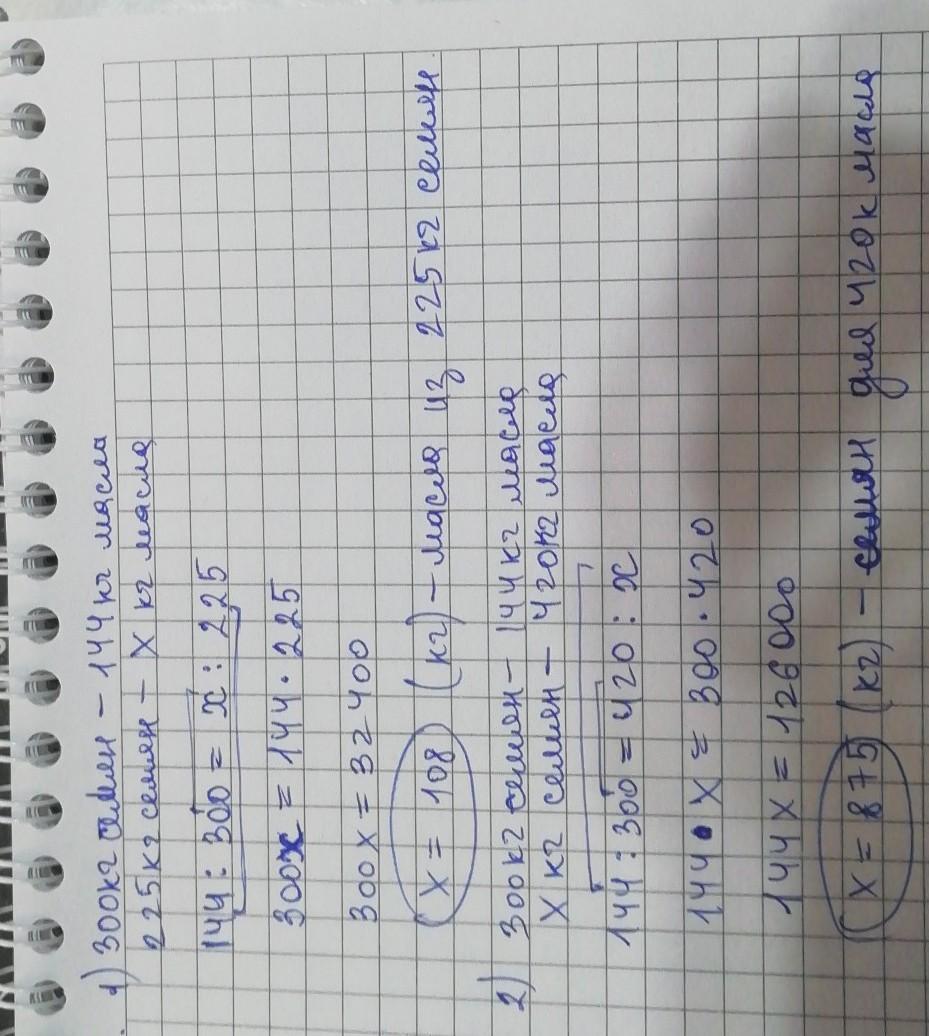 1) 300кг семян - 144кг масла
225кг семян - X кг масла
144 : 300 = x : 225
300x = 144 · 225
300 x = 32400
x = 108 (кг) - масла из 225кг семян.
2) 300кг семян - 144кг масла
X кг семян - 420кг масла
144 : 300 = 420 : x
144 · X = 300 · 420
144 X = 126000
X = 875 (кг) - семян для 420к масла